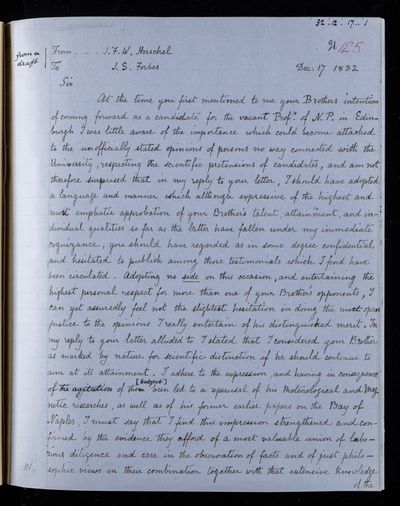 32.12.17..1
21 125
from a
draft
From . . . J. F. W. Herschel
To J. S. Forbes Dec. 17 1832
Sir
At the time you first mentioned to me your Brothers intention
of coming forward as a candidate for the vacant Prof.p of N. P. in Edin-
burgh I was little aware of the importance which could become attached
to the unofficially stated opinions of persons no way connected with the
University, respecting the scientific pretensions of Candidates, and am not
therefore surprised that in my reply to your letter, I should have adopted
a language and manner which although expressive of the highest and
most emphatic approbation of your Brother's talent, attainment, and in-
dividual qualities so far as the latter have fallen under my immediate
cognizance, you should have regarded as in some degree confidential
and hesitated to publish among those testimonials which I find have
been circulated. Adopting no side on this occasion, and entertaining the
highest personal respect for more than one of your Brother's opponents, I
can yet assuredly feel not the slightest hesitation in doing the most open
justice to the opinions I really entertain of his distinguished merit. In
my reply to your letter alluded to I stated that I considered your Brother
as marked by nature for scientific distinction if he should continue to
aim at its attainment. I adhere to the expression, and having in consequence
of the agitation of them [Subject] been led to a reperusal of his Meteorological and Mag-
netic researches, as well as of his former earlier papers on the Bay of
Naples, I must say that I find this impression strengthened and con-
firmed by the evidence they afford of a most valuable union of labo-
rious diligence and care in the observation of facts and of just philo-
sophic views in their combination together with that extensive knowledge
of the